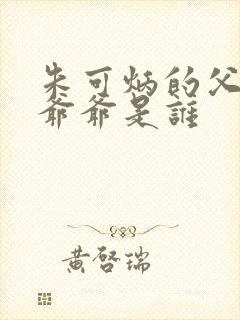 朱可炳的父
爺爺是誰
黃啓瑞